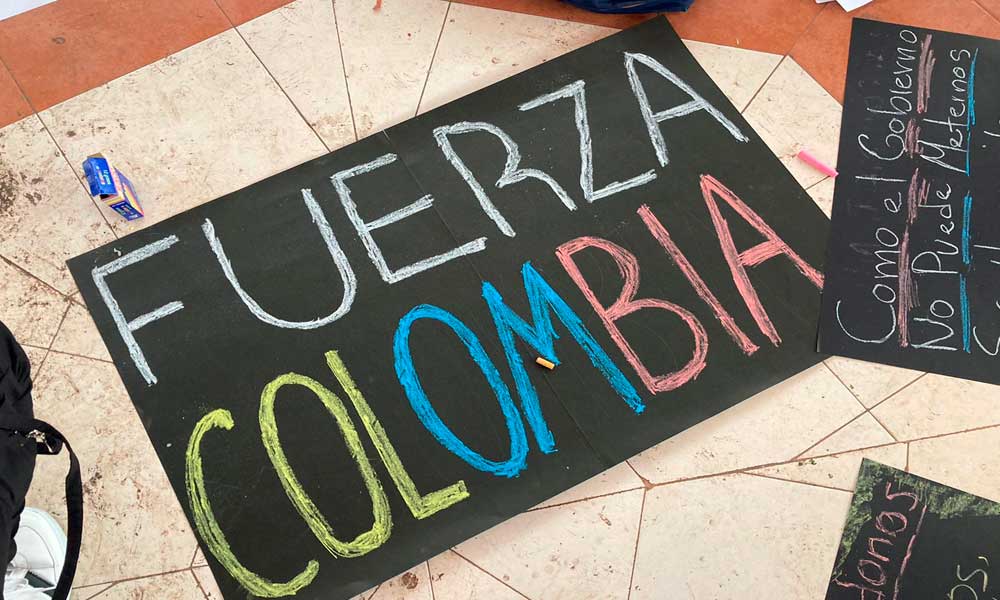 FUERZA
COLOMBIA
Como el Gobierno
No Puede Meternos